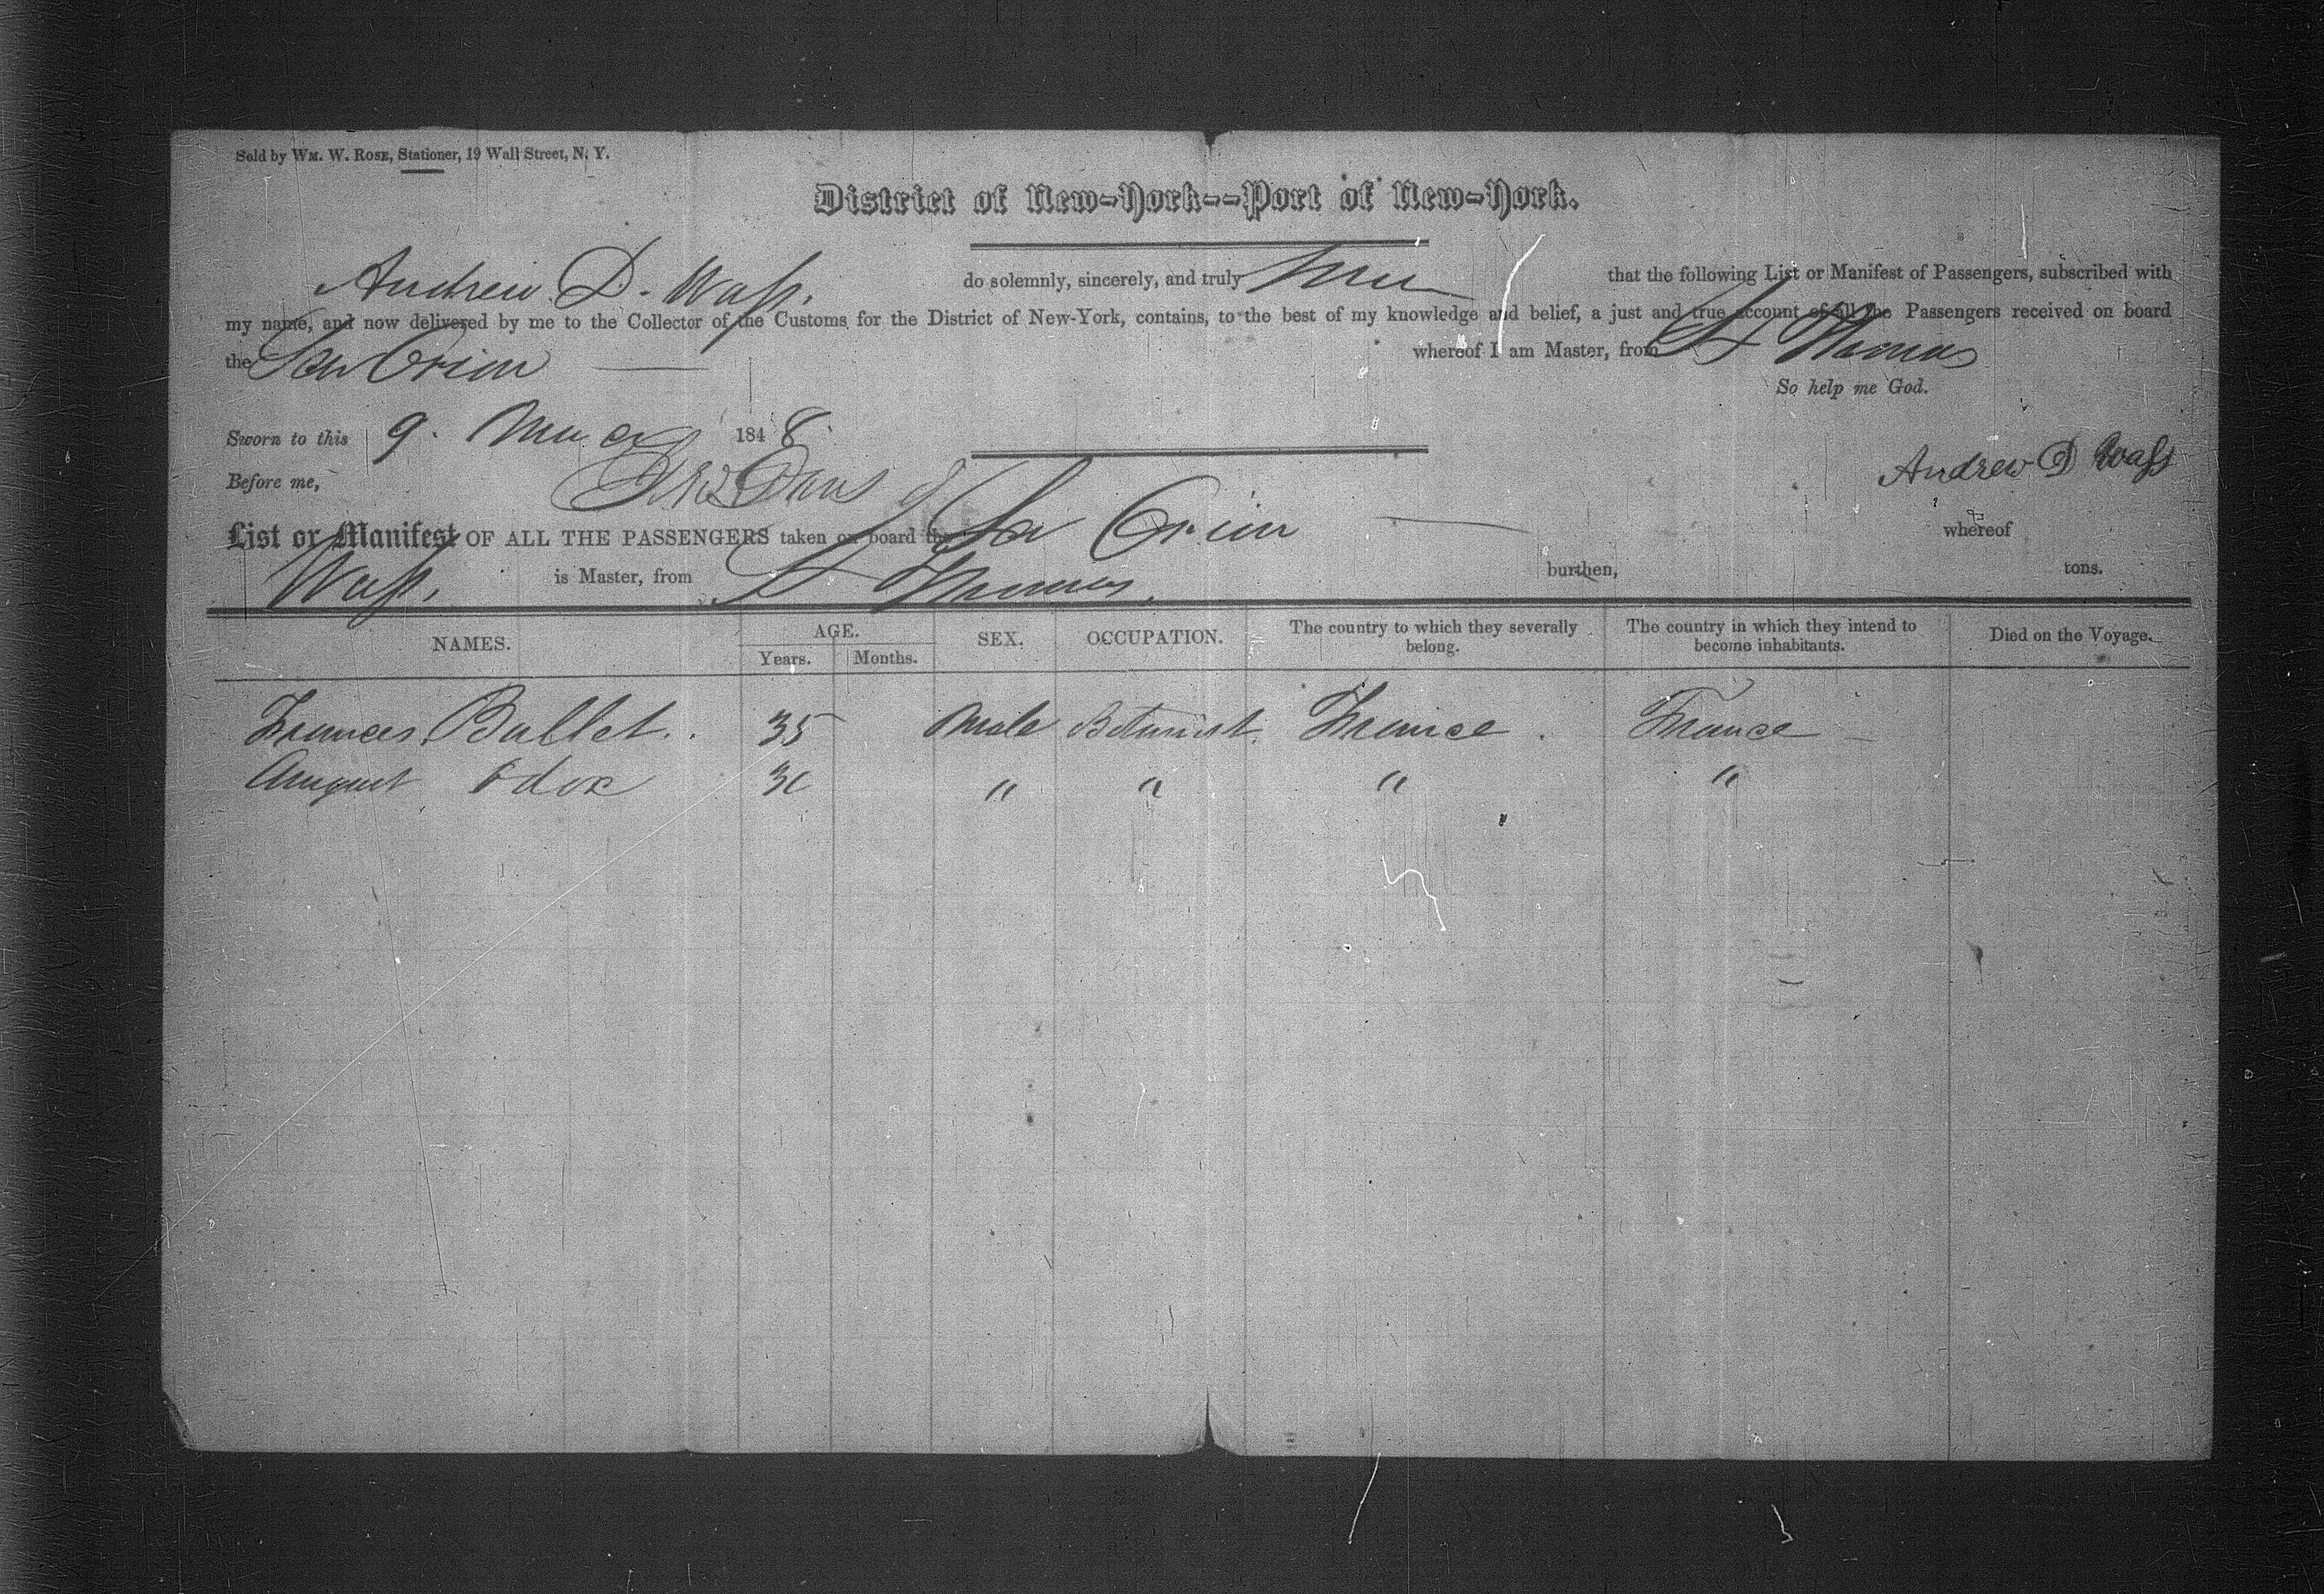 Sold by WM. W. ROSE, Stationer, 19 Wall Street, N. Y.
District of New-York--Port of New-York.
Andrew D. Wass. do solemnly, sincerely, and truly that the following List or Manifest of Passengers, subscribed with
my name, and now delivered by me to the Collector of the Customs for the District of New-York, contains, to the best of my knowledge and belief, a just and true account of all the Passengers received on board
the Orion whereof I am Master, from St Thomas
So help me God.
Sworn to this 9. 1848
Before me, Andrew D Wass
List or Manifest OF ALL THE PASSENGERS taken on board the Orion whereof
Wass. is Master, from St Thomas. burthen, tons.
NAMES. AGE. SEX. OCCUPATION. The country to which they severally belong. The country in which they intend to become inhabitants. Died on the Voyage.
Years. Months.
Frances Ballet. 35 Male Botanist France. France
August 30 " " " "